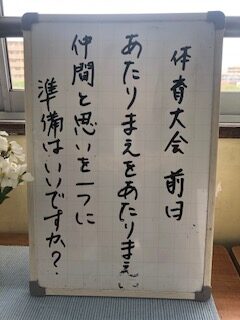 体育大会 前日
あたりまえをあたりまえに
仲間と思いを一つに
準備はいいですか?